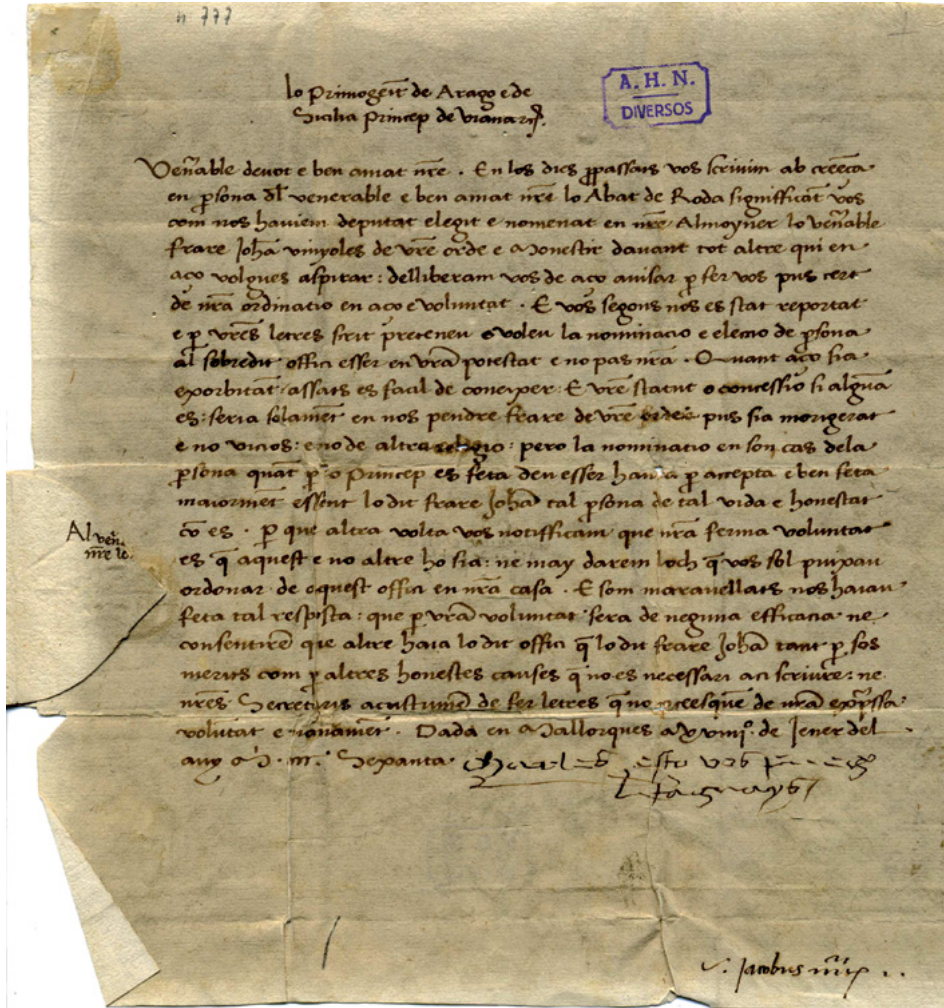 n 777
lo Primogeit de Arago e de
Sicilia Princep de Viana
A. H. N.
DIVERSOS
Venable devot e ben amat nre . En los dies passats vos scrivim ab creença
en psona dl venerable e ben amat nre lo Abat de Roda signifficāt vos
com nos haviem deputat elegit e nomenat en nre Almoyner lo venable
frare Johā vinyoles de vre orde e Monestir davant tot altre qui en
aço volgues aspirar : delliberam vos de aço avisar p fer vos pus cert
de nra ordinatio en aço e voluntat . E vos segons nos es stat reportat
e p vres letres scrit preteneu o voleu la nominacio e eleccio de psona
al sobredit offici esser en vra potestat e no pas nra . Quant aço sia
exorbitāt assats es facil de coneixer . E vre statut o concessio si alguā
es : seria solamēt en nos pendre frare de vre orde pus sia morigerat
e no vicios : e no de altra religio : pero la nominatio en son cas dela
psona quāt p Princep es feta deu esser p accepta e ben feta
maiormēt essent lo dit frare Johā tal psona de tal vida e honestat
cō es . p que altra volta vos notifficam que nra ferma voluntat
es q aquest e no altre ho sia : ne may darem loch q vos sol puixau
ordonar de aquest offici en nra casa . E som maravellats nos haiau
feta tal resposta : que p vra voluntat sera de neguna efficacia ne
consentirē que altre haia lo dit offici q lo dit frare Johā tant p sos
merits com p altres honestes causes q no es necessari aci scriure : ne
nres Secretaris acustumen de fer letres q no de nra expssa
volūtat e . Dada en Mallorques a xviiij. de Jener del
any M . Sexanta . Charles
Al ven.
nre lo
Jacobus